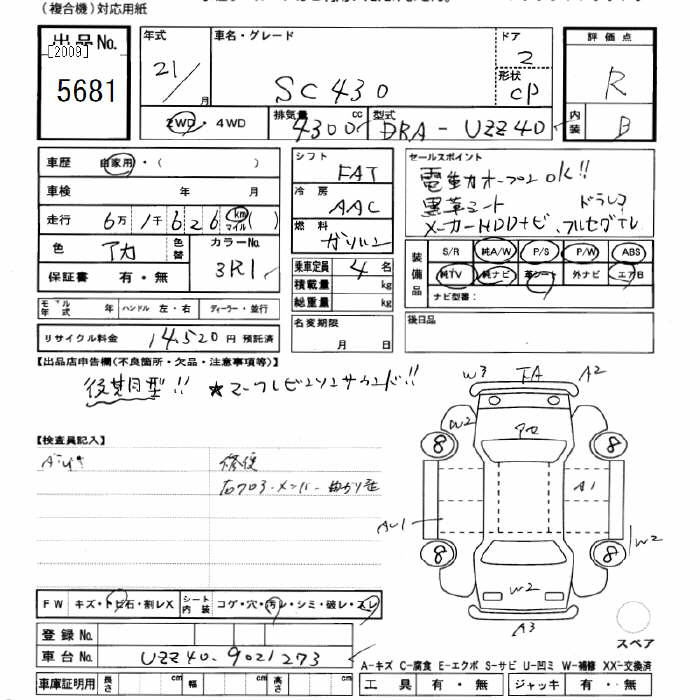 (複合機)対応用紙
出品No.
[2009]
5681
年式
21/
月
車名・グレード
SC430
ドア
2
形状
CP
評価点
R
内装
B
2WD・4WD
排気量
4300
cc
型式
DBA-UZZ40
車歴
自家用・( )
車検
年 月
走行
6万1千626
km
マイル
( )
色
アカ
色替
カラーNo.
3R1
保証書
有・無
モデル年式
年
ハンドル 左・右
ディーラー・並行
リサイクル料金
14,520円 預託済
シフト
FAT
冷房
AAC
燃料
ガソリン
乗車定員
4名
積載量
kg
総重量
kg
名変期限
月 日
セールスポイント
電動オープンOK!!
黒革シート ドラレコ
メーカーHDDナビ、フルセグTV
装備品
S/R
純A/W
P/S
P/W
ABS
純TV
純ナビ
革シート
外ナビ
エアB
ナビ型番:
後日品
【出品店申告欄(不良箇所・欠品・注意事項等)】
後期型!! ★マフラーサウンド!!
【検査員記入】
修復
右フロメンバー曲がり
W3
FA
A2
W2
8
8
A1
8
8
W2
W2
A3
スペア
FW
キズ・トビ石・割レX
シート内装
コゲ・穴・汚レ・シミ・破レ・スレ
登録No.
車台No.
UZZ40-9021273
車庫証明用
長さ
cm
幅
cm
高さ
cm
A-キズ C-腐食 E-エクボ S-サビ U-凹ミ W-補修 XX-交換済
工具
有・無
ジャッキ
有・無